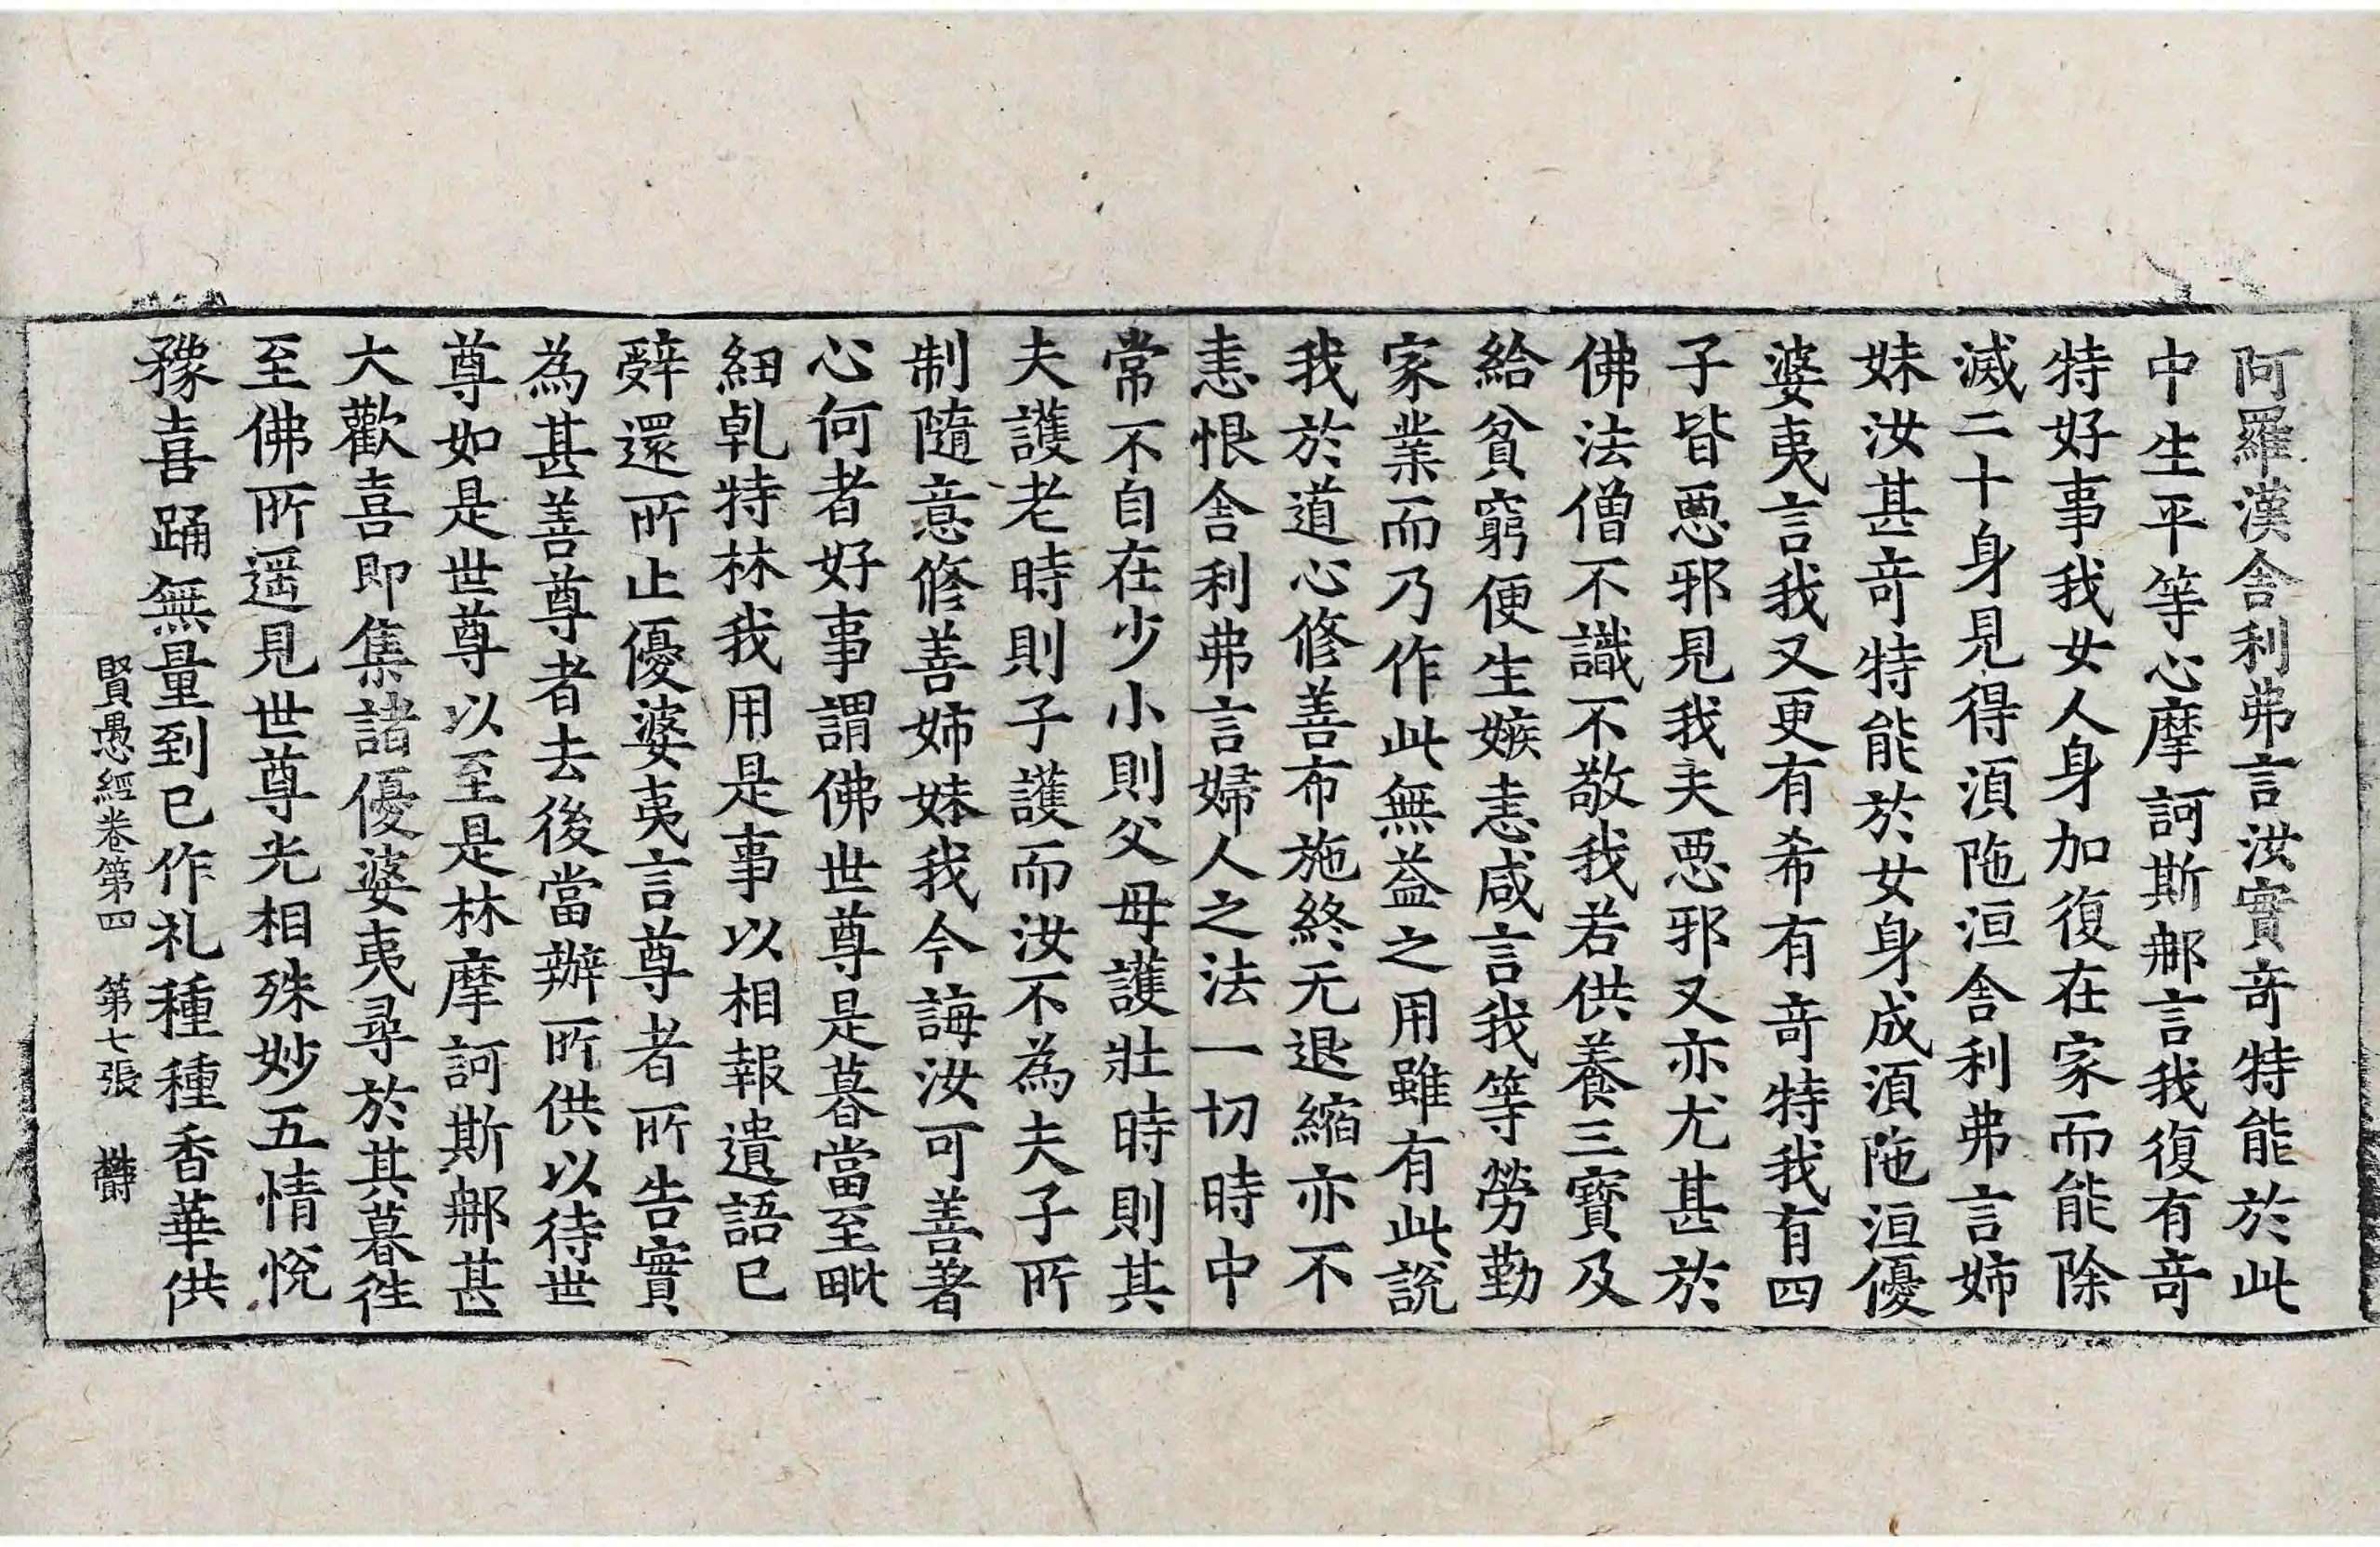 阿羅漢舍利弗言汝實奇特能於此
中生平等心摩訶斯那言我復有奇
特好事我女人身加復在家而能除
滅二十身見得湏陁洹舍利弗言姉
妹汝甚奇特能於女身成湏陁洹優
婆夷言我又更有希有奇特我有四
子皆惡邪見我夫惡邪又亦尤甚於
佛法僧不識不敬我若供養三寶及
給貧窮便生嫉恚咸言我等勞勤
家業而乃作此無益之用雖有此說
我於道心修善布施終无退縮亦不
恚恨舍利弗言婦人之法一切時中
常不自在少小則父母護壯時則其
夫護老時則子護而汝不為夫子所
制隨意修善姉妹我今誨汝可善著
心何者好事謂佛世尊是暮當至毗
紐乹特林我用是事以相報遺語已
辝還所止優婆夷言尊者所告實
為甚善尊者去後當辦所供以待世
尊如是世尊以至是林摩訶斯那甚
大歡喜即集諸優婆夷尋於其暮徃
至佛所遥見世尊光相殊妙五情悅
豫喜踊無量到已作礼種種香華供
賢愚經卷第四　第七張　欝